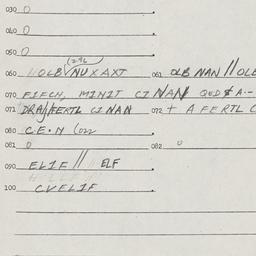 030 0
040 0
050 0
(296
060 OLB NUXAXT 061 OLB NAN // OLB
070 FIFCH, MINIT CINAN QUD & A--
071 DRA//FERTL CINAN 072 + A FERTL C
080 C.E.N (022
081 0 082 0
090 ELIF // ELF
100 CVELIF